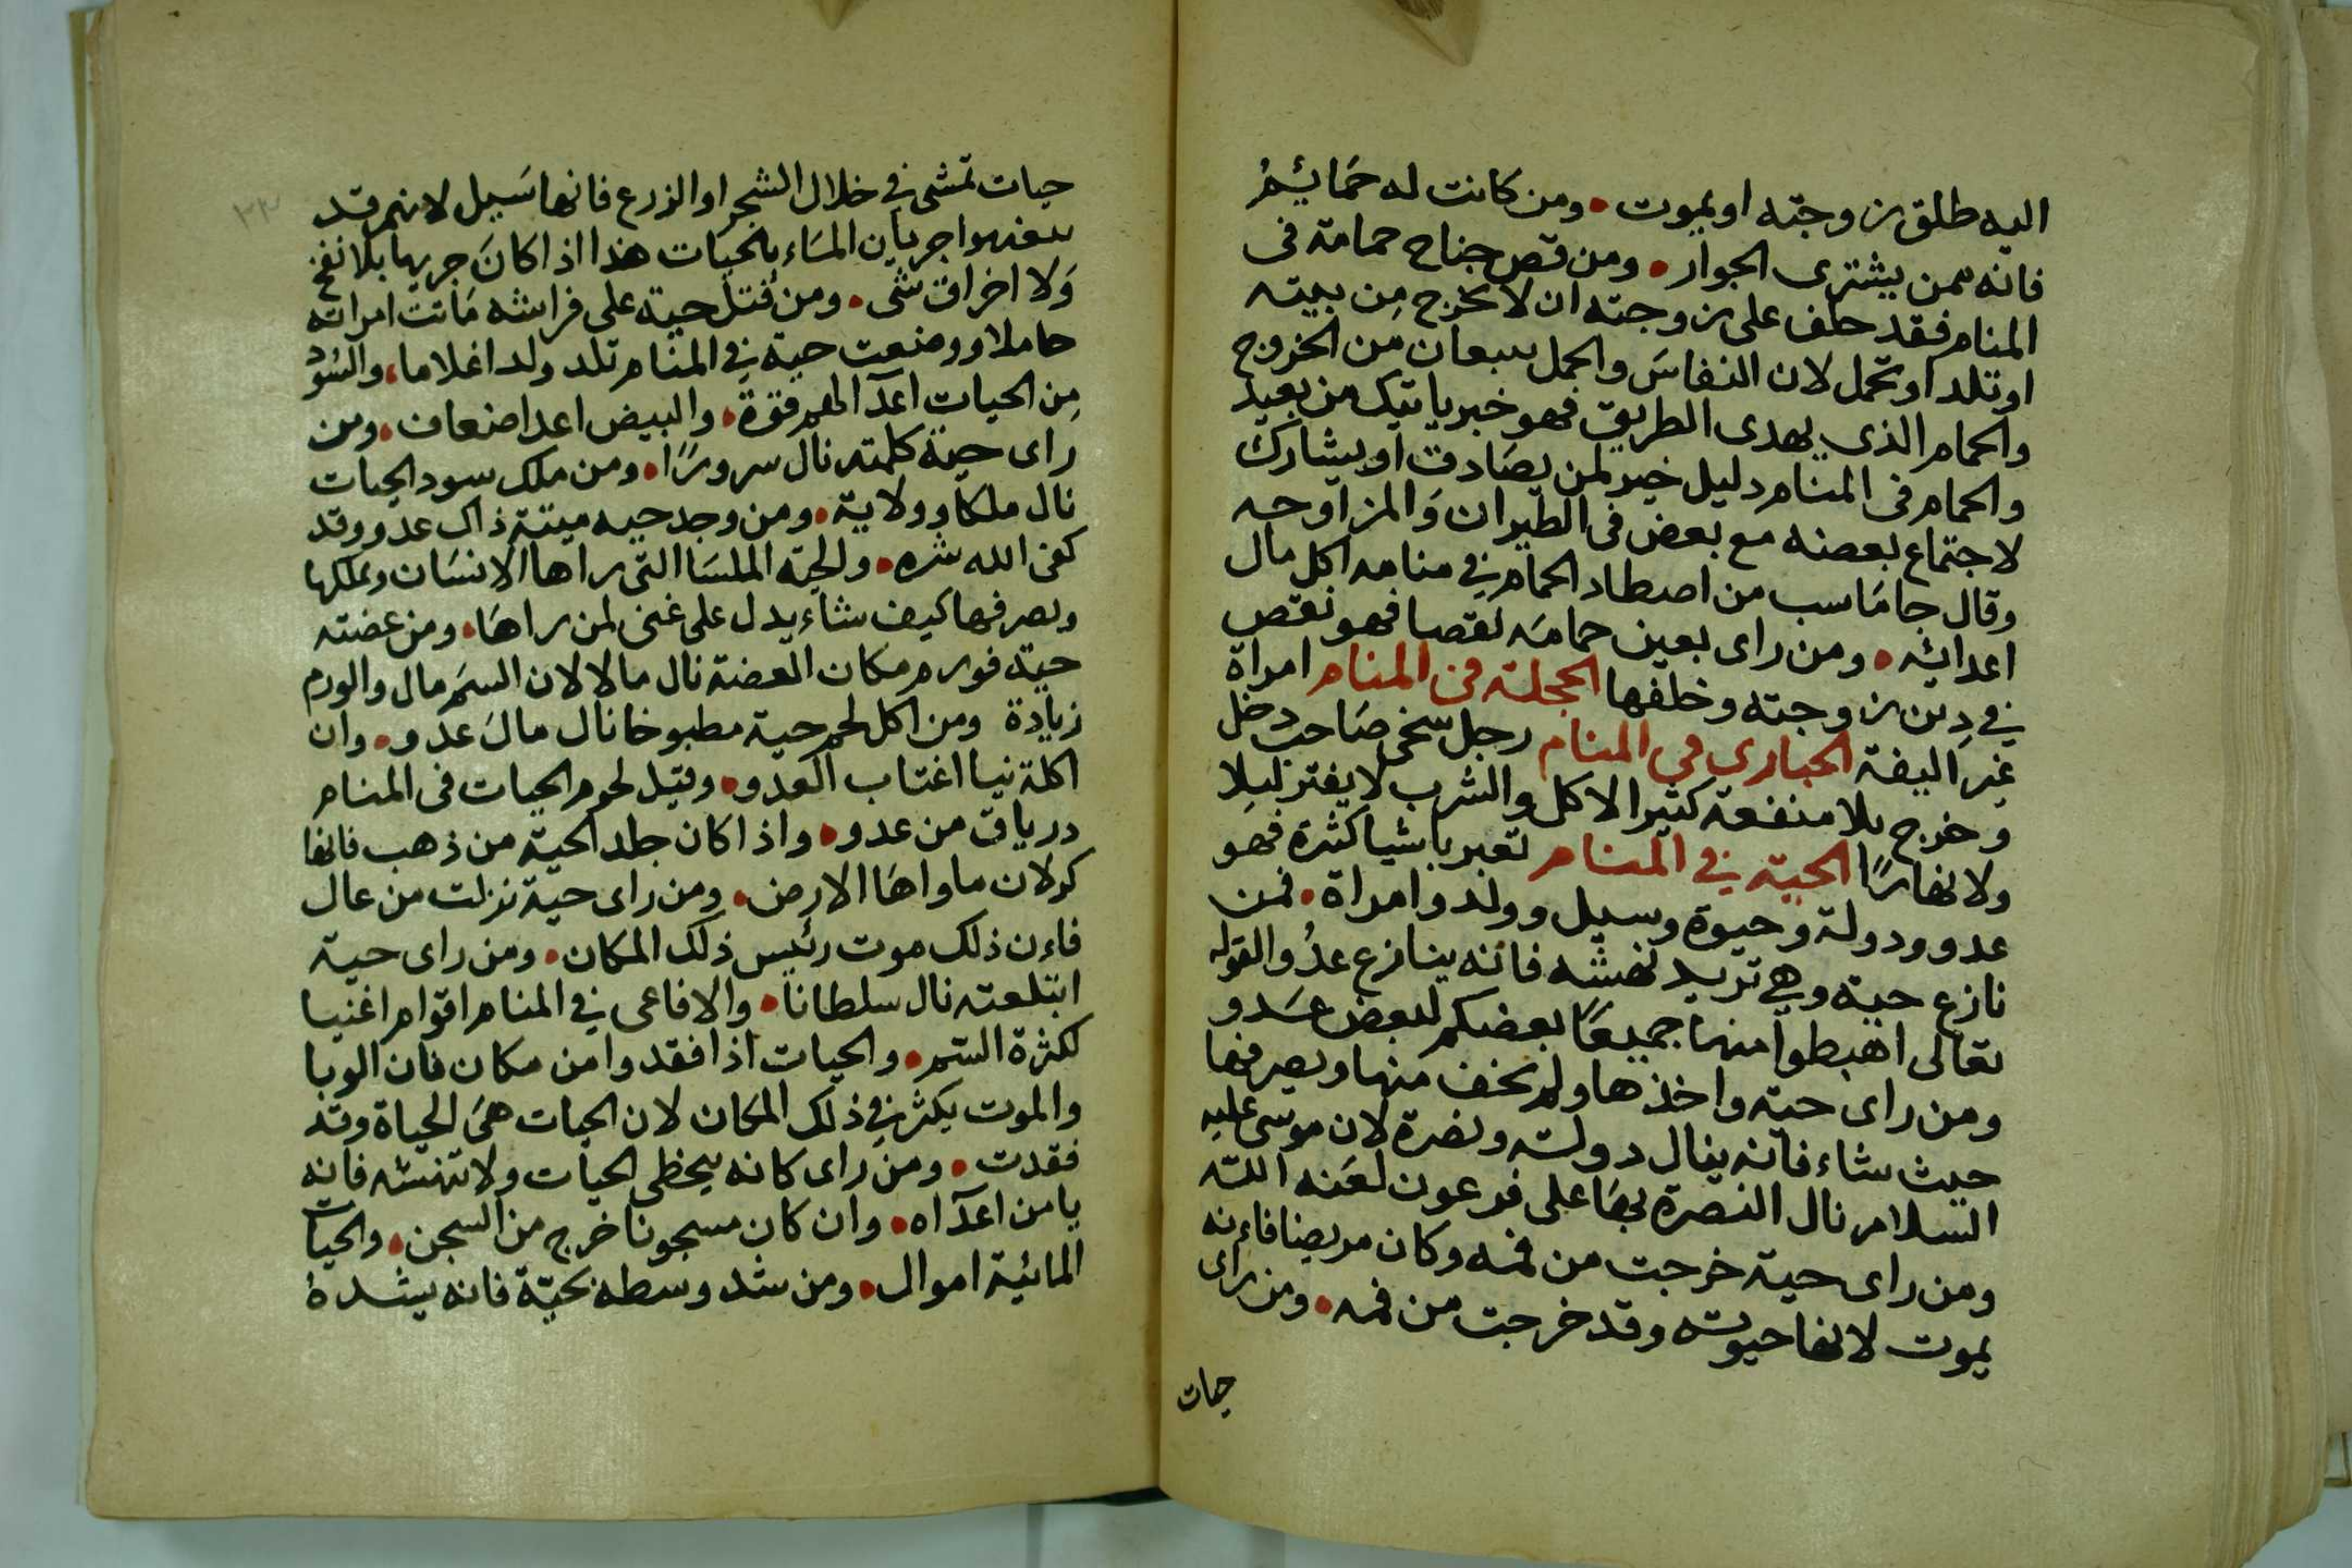 اليه طلق زوجته او يموت • ومن كانت له حمائم
فانه ممن يشترى الجوار • ومن قص جناح حمامة فى
المنام فقد حلف على زوجته ان لا تخرج من بيته
او تلد او تحمل لان النفاس والحمل يمنعان من الخروج
والحمام الذى يهدى الطريق فهو خبر ياتيك من بعيد
والحمام فى المنام دليل خير لمن يصادق او يشارك
لاجتماع بعضه مع بعض فى الطيران والمزاوجه
وقال جاماسب من اصطاد الحمام في منامه اكل مال
اعدائه • ومن راى بعين حمامه نقصا فهو نقص
في دين زوجته وخلفها الحجلة فى المنام امراة
غير اليفة الحبارى في المنام رجل سخى صاحب دخل
وخرج بلا منفعة كثير الاكل والشرب لا يفتر ليلا
ولا نهارًا الحية في المنام تعبر باشيا كثرة فهو
عدو ودولة وحيوة وسيل وولد وامراة • فمن
نازع حية وهي تريد نهشه فانه ينازع عدُوا لقوله
تعالى اهبطوا منها جميعًا بعضكم لبعض عدو
ومن راى حية واخذها ولم يخف منها ويصرفها
حيث شاء فانه ينال دولة ونصرة لان موسى عليه
السلام نال النصرة بها على فرعون لعنه الله
ومن راى حية خرجت من فمه وكان مريضا فاءنه
يموت لانها حيوته وقد خرجت من فمه • ومن راى
حيات
٢٣
حيات تمشى في خلال الشجر او الزرع فانها سيل لانهم قد
جريان الماء بالحيات هذا اذا كان جريها بلا نفخ
ولا اخراق شى • ومن قتل حية على فراشه ماتت امراته
حاملا ووضعت حية في المنام تلد ولدا غلاما، والسود
من الحيات اعدآ لهم قوة • والبيض اعدا ضعاف • ومن
راى حية كلمته نال سرورًا • ومن ملك سود الحيات
نال ملكا وولاية • ومن وجد حيه ميتة ذاك عدو وقد
كفى الله شره • والحية الملسا التى راها الانسان ويملكها
ويصرفها كيف شاء يدل على غنى لمن راها • ومن عضته
حية فورم مكان العضة نال مالا لان السم مال والورم
زيادة ومن اكل لحم حية مطبوخا نال مال عدو • وان
اكلة نيا اغتاب العدو • وقيل لحوم الحيات فى المنام
درياق من عدو • واذا كان جلد الحية من ذهب فانها
كنز لان ماواها الارض • ومن راى حية نزلت من عال
فاءن ذلك موت رئيس ذلك المكان • ومن راى حية
ابتلعته نال سلطانا • والافاعى في المنام اقوام اغنيا
لكثرة السم • والحيات اذا فقدوا من مكان فان الوبا
والموت يكثر في ذلك المكان لان الحيات هى الحياة وقد
فقدت • ومن راى كانه يخطى الحيات ولا تنهشه فانه
يامن اعدآه • وان كان مسجونا خرج من السجن • والحيات
المائية اموال • ومن شد وسطه بحيّة فانه يشدهُ